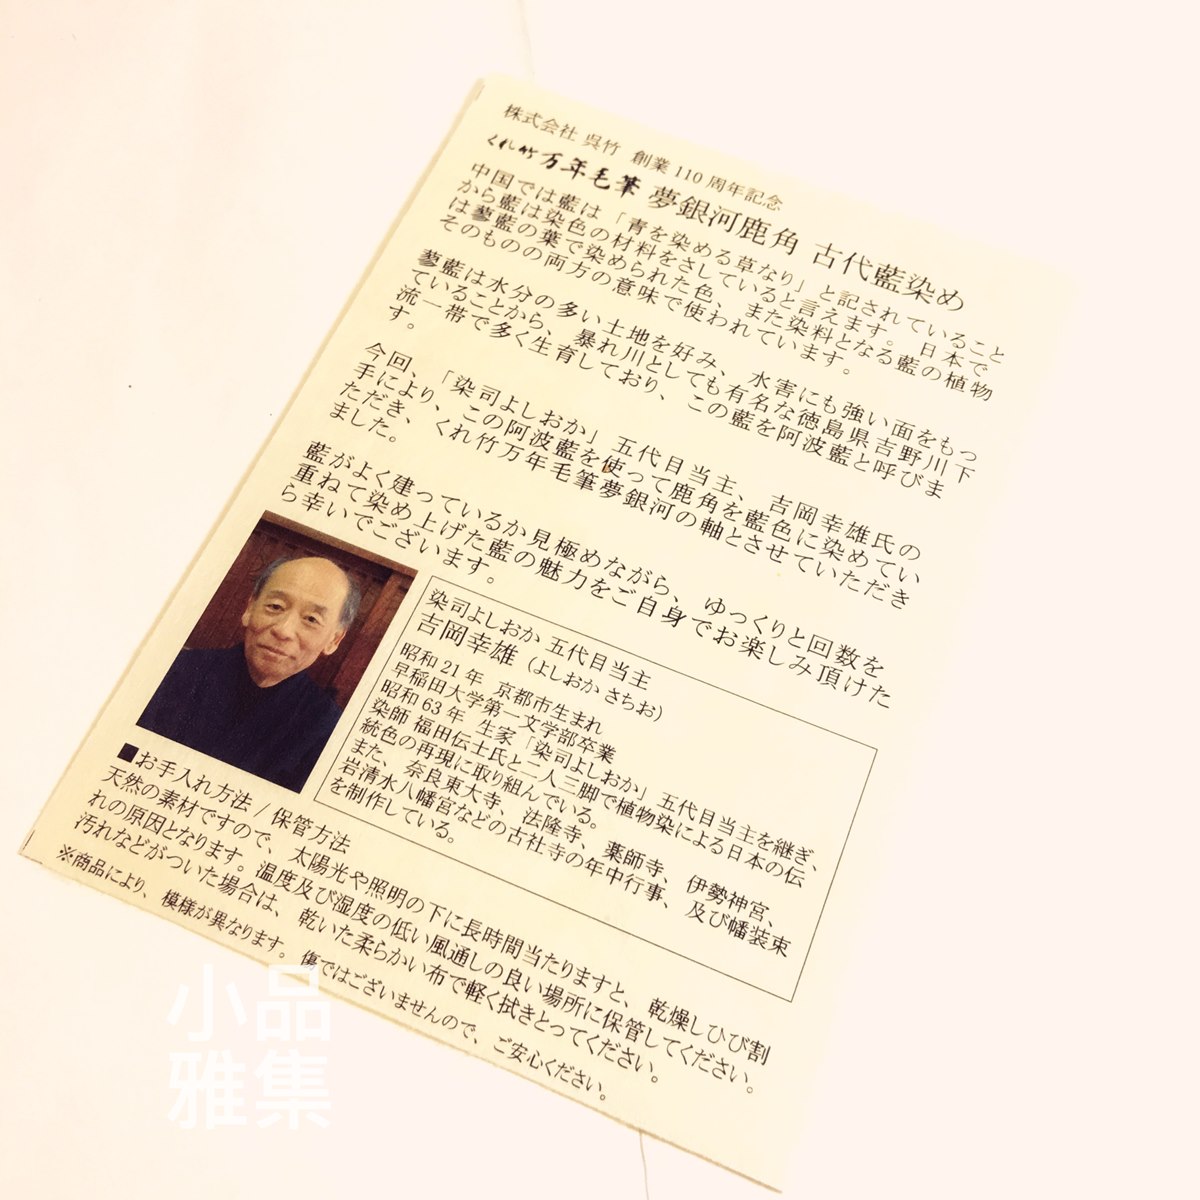 株式会社 呉竹 創業 110 周年記念
くれ竹万年毛筆 夢銀河鹿角 古代藍染め
中国では藍は「青を染める草なり」と記されていること
から藍は染色の材料をさしていると言えます。日本で
は蓼藍の葉で染められた色、また染料となる藍の植物
そのものの両方の意味で使われています。
蓼藍は水分の多い土地を好み、水害にも強い面をもっ
ていることから、暴れ川としても有名な徳島県吉野川下
流一帯で多く生育しており、この藍を阿波藍と呼びま
す。
今回、「染司よしおか」五代目当主、吉岡幸雄氏の
手により、この阿波藍を使って鹿角を藍色に染めてい
ただき、くれ竹万年毛筆夢銀河の軸とさせていただき
ました。
藍がよく建っているか見極めながら、ゆっくりと回数を
重ねて染め上げた藍の魅力をご自身でお楽しみ頂けた
ら幸いでございます。
染司よしおか 五代目当主
吉岡幸雄（よしおか さちお）
昭和 21 年 京都市生まれ
早稲田大学第一文学部卒業
昭和 63 年 生家「染司よしおか」五代目当主を継ぎ、
染師 福田伝士氏と二人三脚で植物染による日本の伝
統色の再現に取り組んでいる。
また、奈良東大寺、法隆寺、薬師寺、伊勢神宮、
岩清水八幡宮などの古社寺の年中行事、及び幡装束
を制作している。
■お手入れ方法 / 保管方法
天然の素材ですので、太陽光や照明の下に長時間当たりますと、乾燥しひび割
れの原因となります。温度及び湿度の低い風通しの良い場所に保管してください。
汚れなどがついた場合は、乾いた柔らかい布で軽く拭きとってください。
※商品により、模様が異なります。傷ではございませんので、ご安心ください。
小品
雅集